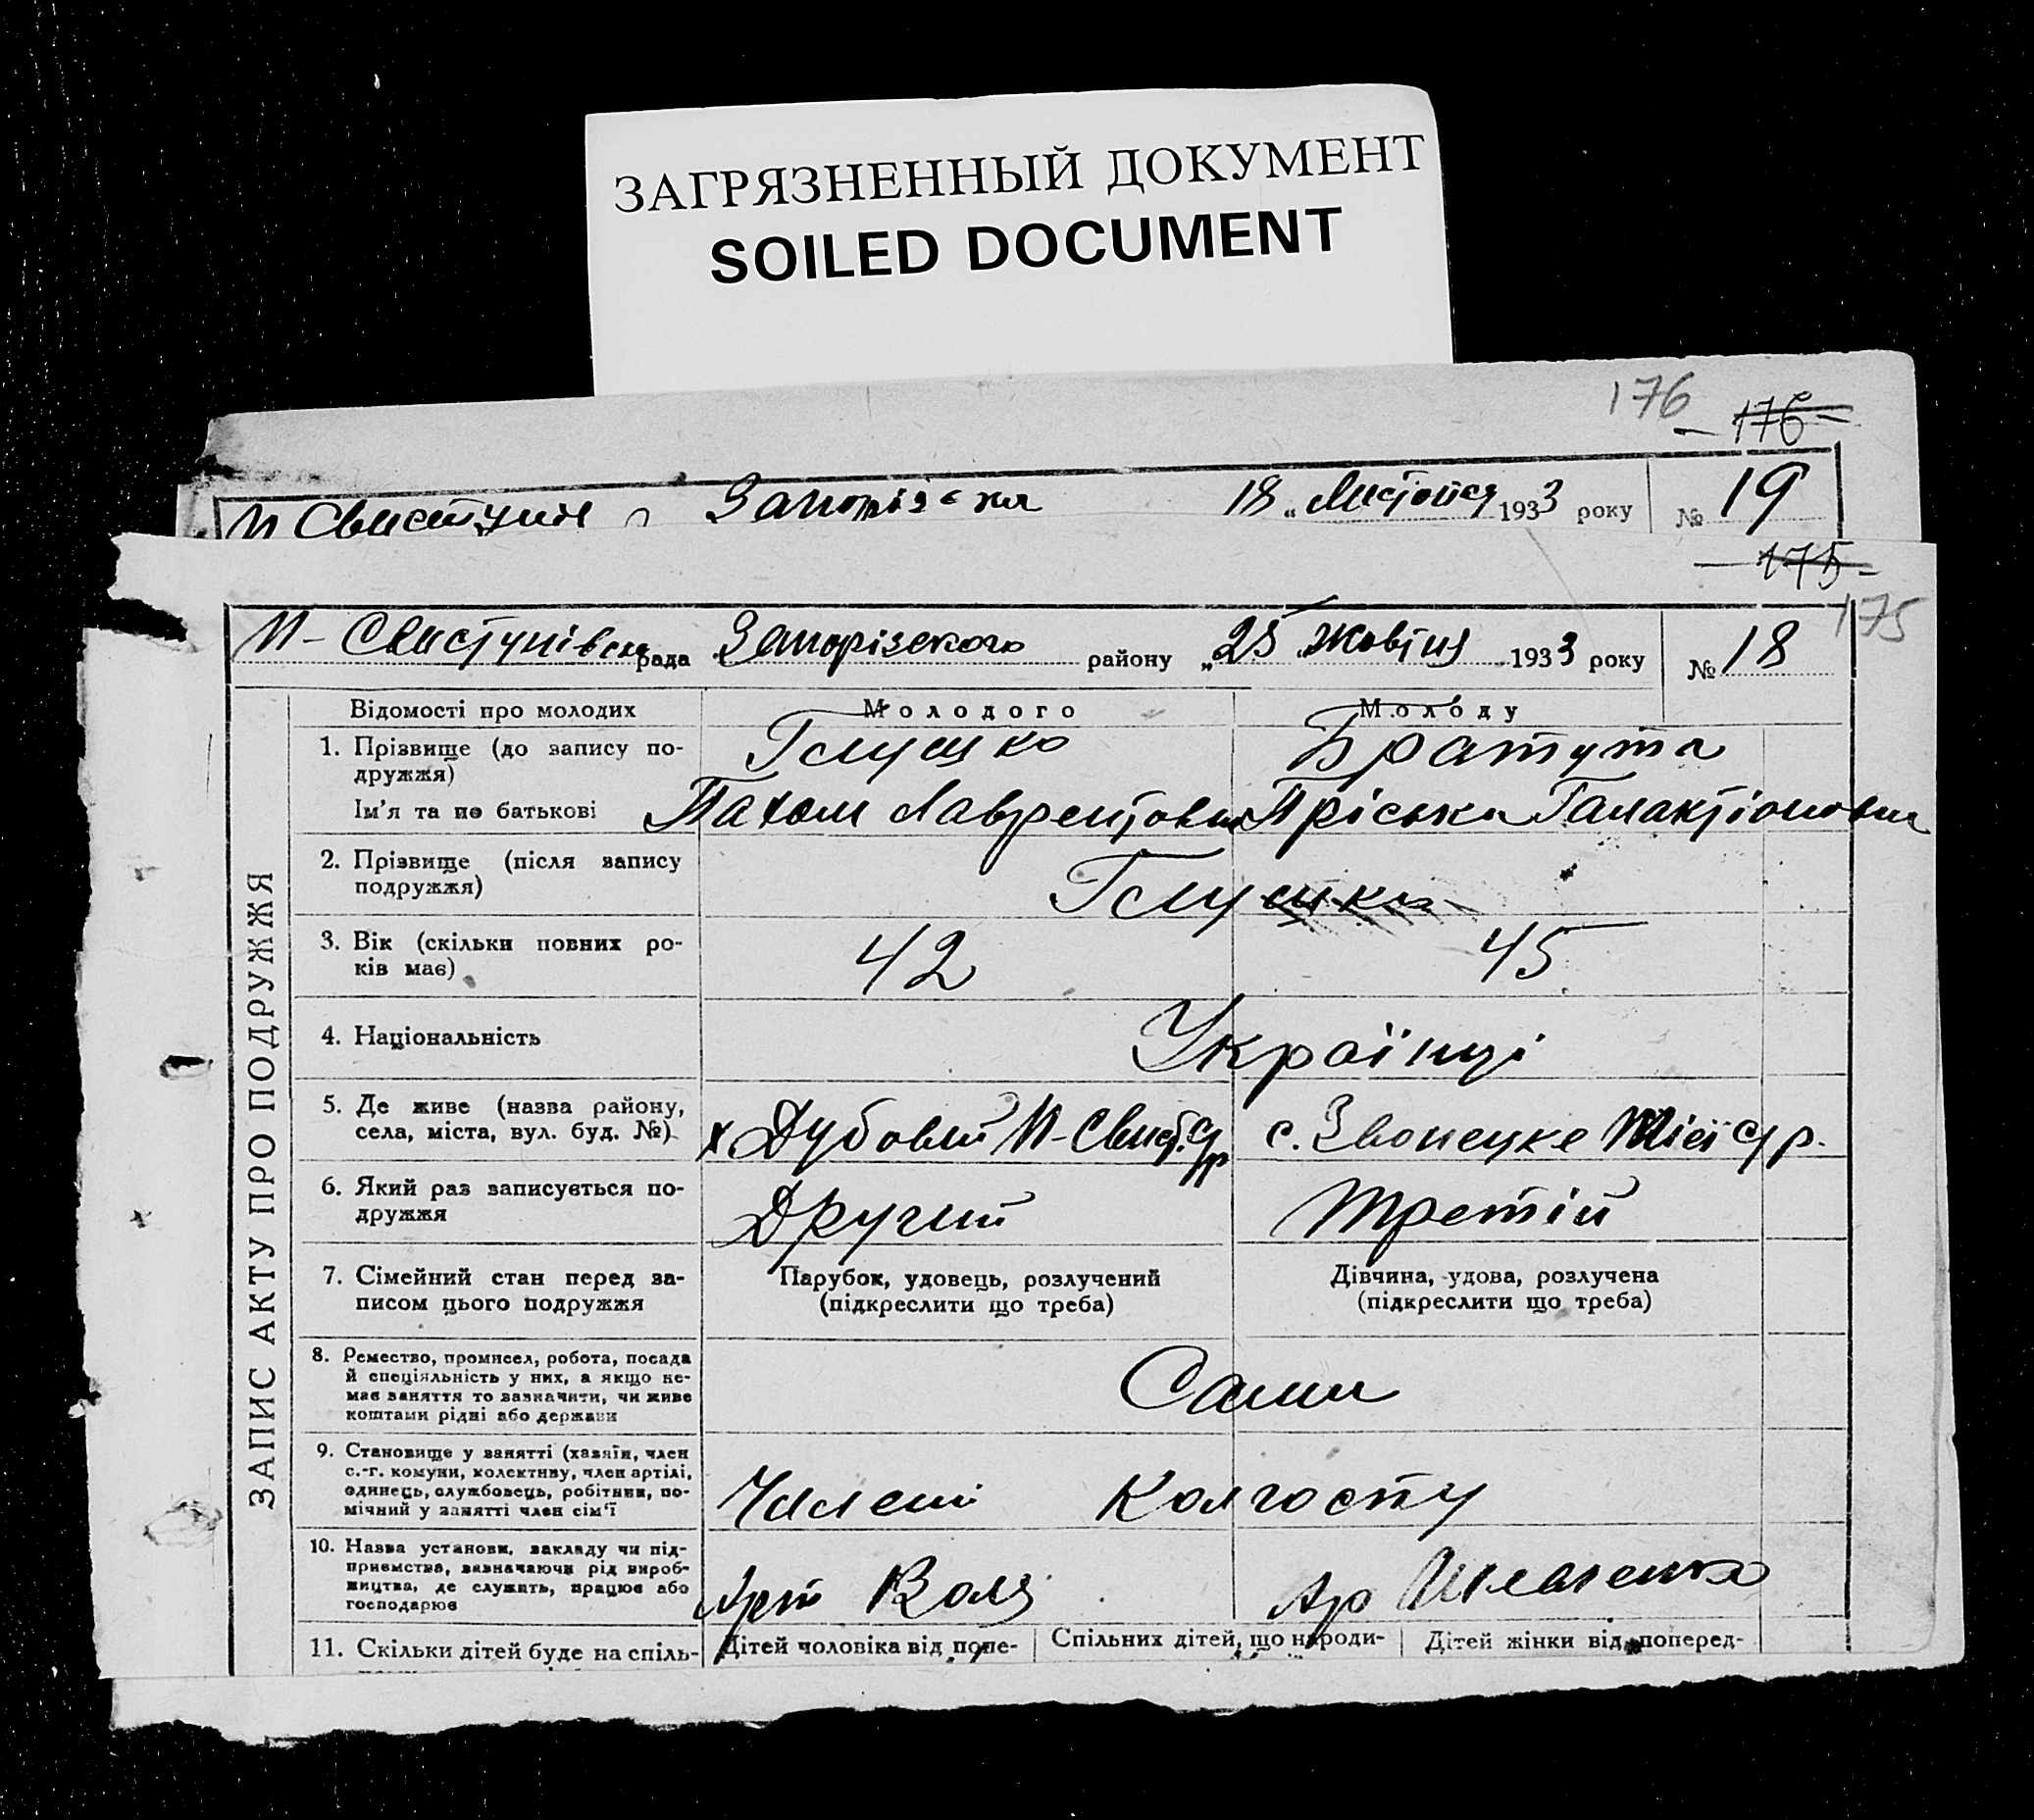 ЗАГРЯЗНЕННЫЙ ДОКУМЕНТ
SOILED DOCUMENT
176
176
18 „ 1933 року № 19
175
175
И-Свистунівська рада Запорізского району „25 Жовтня 1933 року № 18
ЗАПИС АКТУ ПРО ПОДРУЖЖЯ
Відомості про молодих Молодого Молоду
1. Прізвище (до запису по-
дружжя)
Глушко Братута
Ім'я та по батькові Пахом Лаврентович Пріська Галактіоновна
2. Прізвище (після запису
подружжя)
Глушки
3. Вік (скільки повних ро-
ків має)
42 45
4. Національність Українці
5. Де живе (назва району,
села, міста, вул. буд. №)
х Дубовий И-Свист. с/р с. Звонецке Тієї с/р.
6. Який раз записується по-
дружжя
Другий Третій
7. Сімейний стан перед за-
писом цього подружжя
Парубок, удовець, розлучений
(підкреслити що треба)
Дівчина, удова, розлучена
(підкреслити що треба)
8. Ремество, промисел, робота, посада
й спеціяльність у них, а якщо не-
має заняття то зазначити, чи живе
коштами рідні або держави
Сами
9. Становище у занятті (хазяїн, член
с.-г. комуни, колективу, член артілі,
одинець, службовець, робітник, по-
мічний у занятті член сім'ї
Члени Колгоспу
10. Назва установи, закладу чи під-
приємства, зазначаючи рід вироб-
ництва, де служить, працює або
господарює
Арт Воля Ар Шевченка
11. Скільки дітей буде на спіль- Дітей чоловіка від попе- Спільних дітей, що народи- Дітей жінки від поперед-